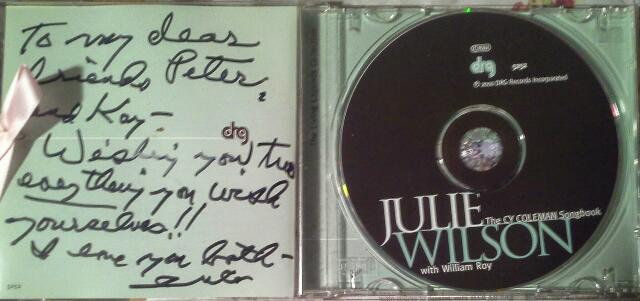 To my dear
friends Peter
and Kay-
Wishing you two
everything you wish
yourselves!!
I love you both-
drg
drg
© 2000 DRG Records Incorporated
JULIE
The CY COLEMAN Songbook
WILSON
with William Roy